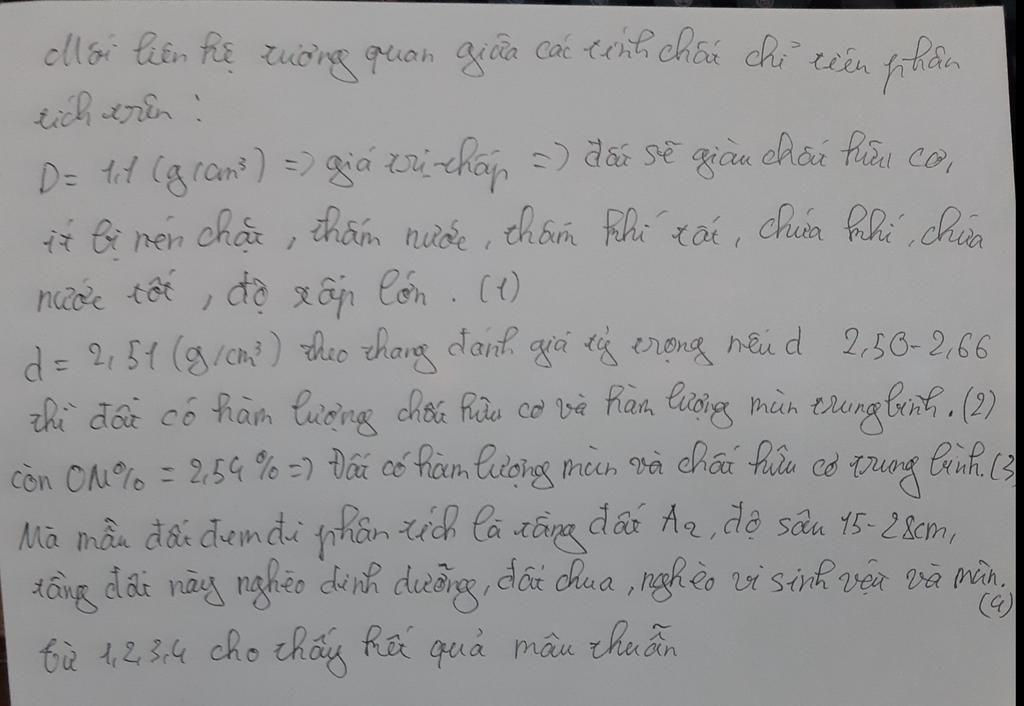 Mối liên hệ tương quan giữa các tính chất chỉ tiêu phân
tích trên :
D = 1,1 (g/cm³) => giá trị thấp => đất sẽ giàu chất hữu cơ,
ít bị nén chặt, thấm nước, thấm khí tốt, chứa khí, chứa
nước tốt, độ xốp lớn. (1)
d = 2,51 (g/cm³) theo thang đánh giá tỷ trọng nếu d 2,50-2,66
thì đất có hàm lượng chất hữu cơ và hàm lượng mùn trung bình. (2)
còn OM% = 2,54% => Đất có hàm lượng mùn và chất hữu cơ trung bình. (3
Mà mẫu đất đem đi phân tích là tầng đất A₂, độ sâu 15-28cm,
tầng đất này nghèo dinh dưỡng, đất chua, nghèo vi sinh vật và mùn.
(4)
từ 1,2,3,4 cho thấy kết quả mâu thuẫn